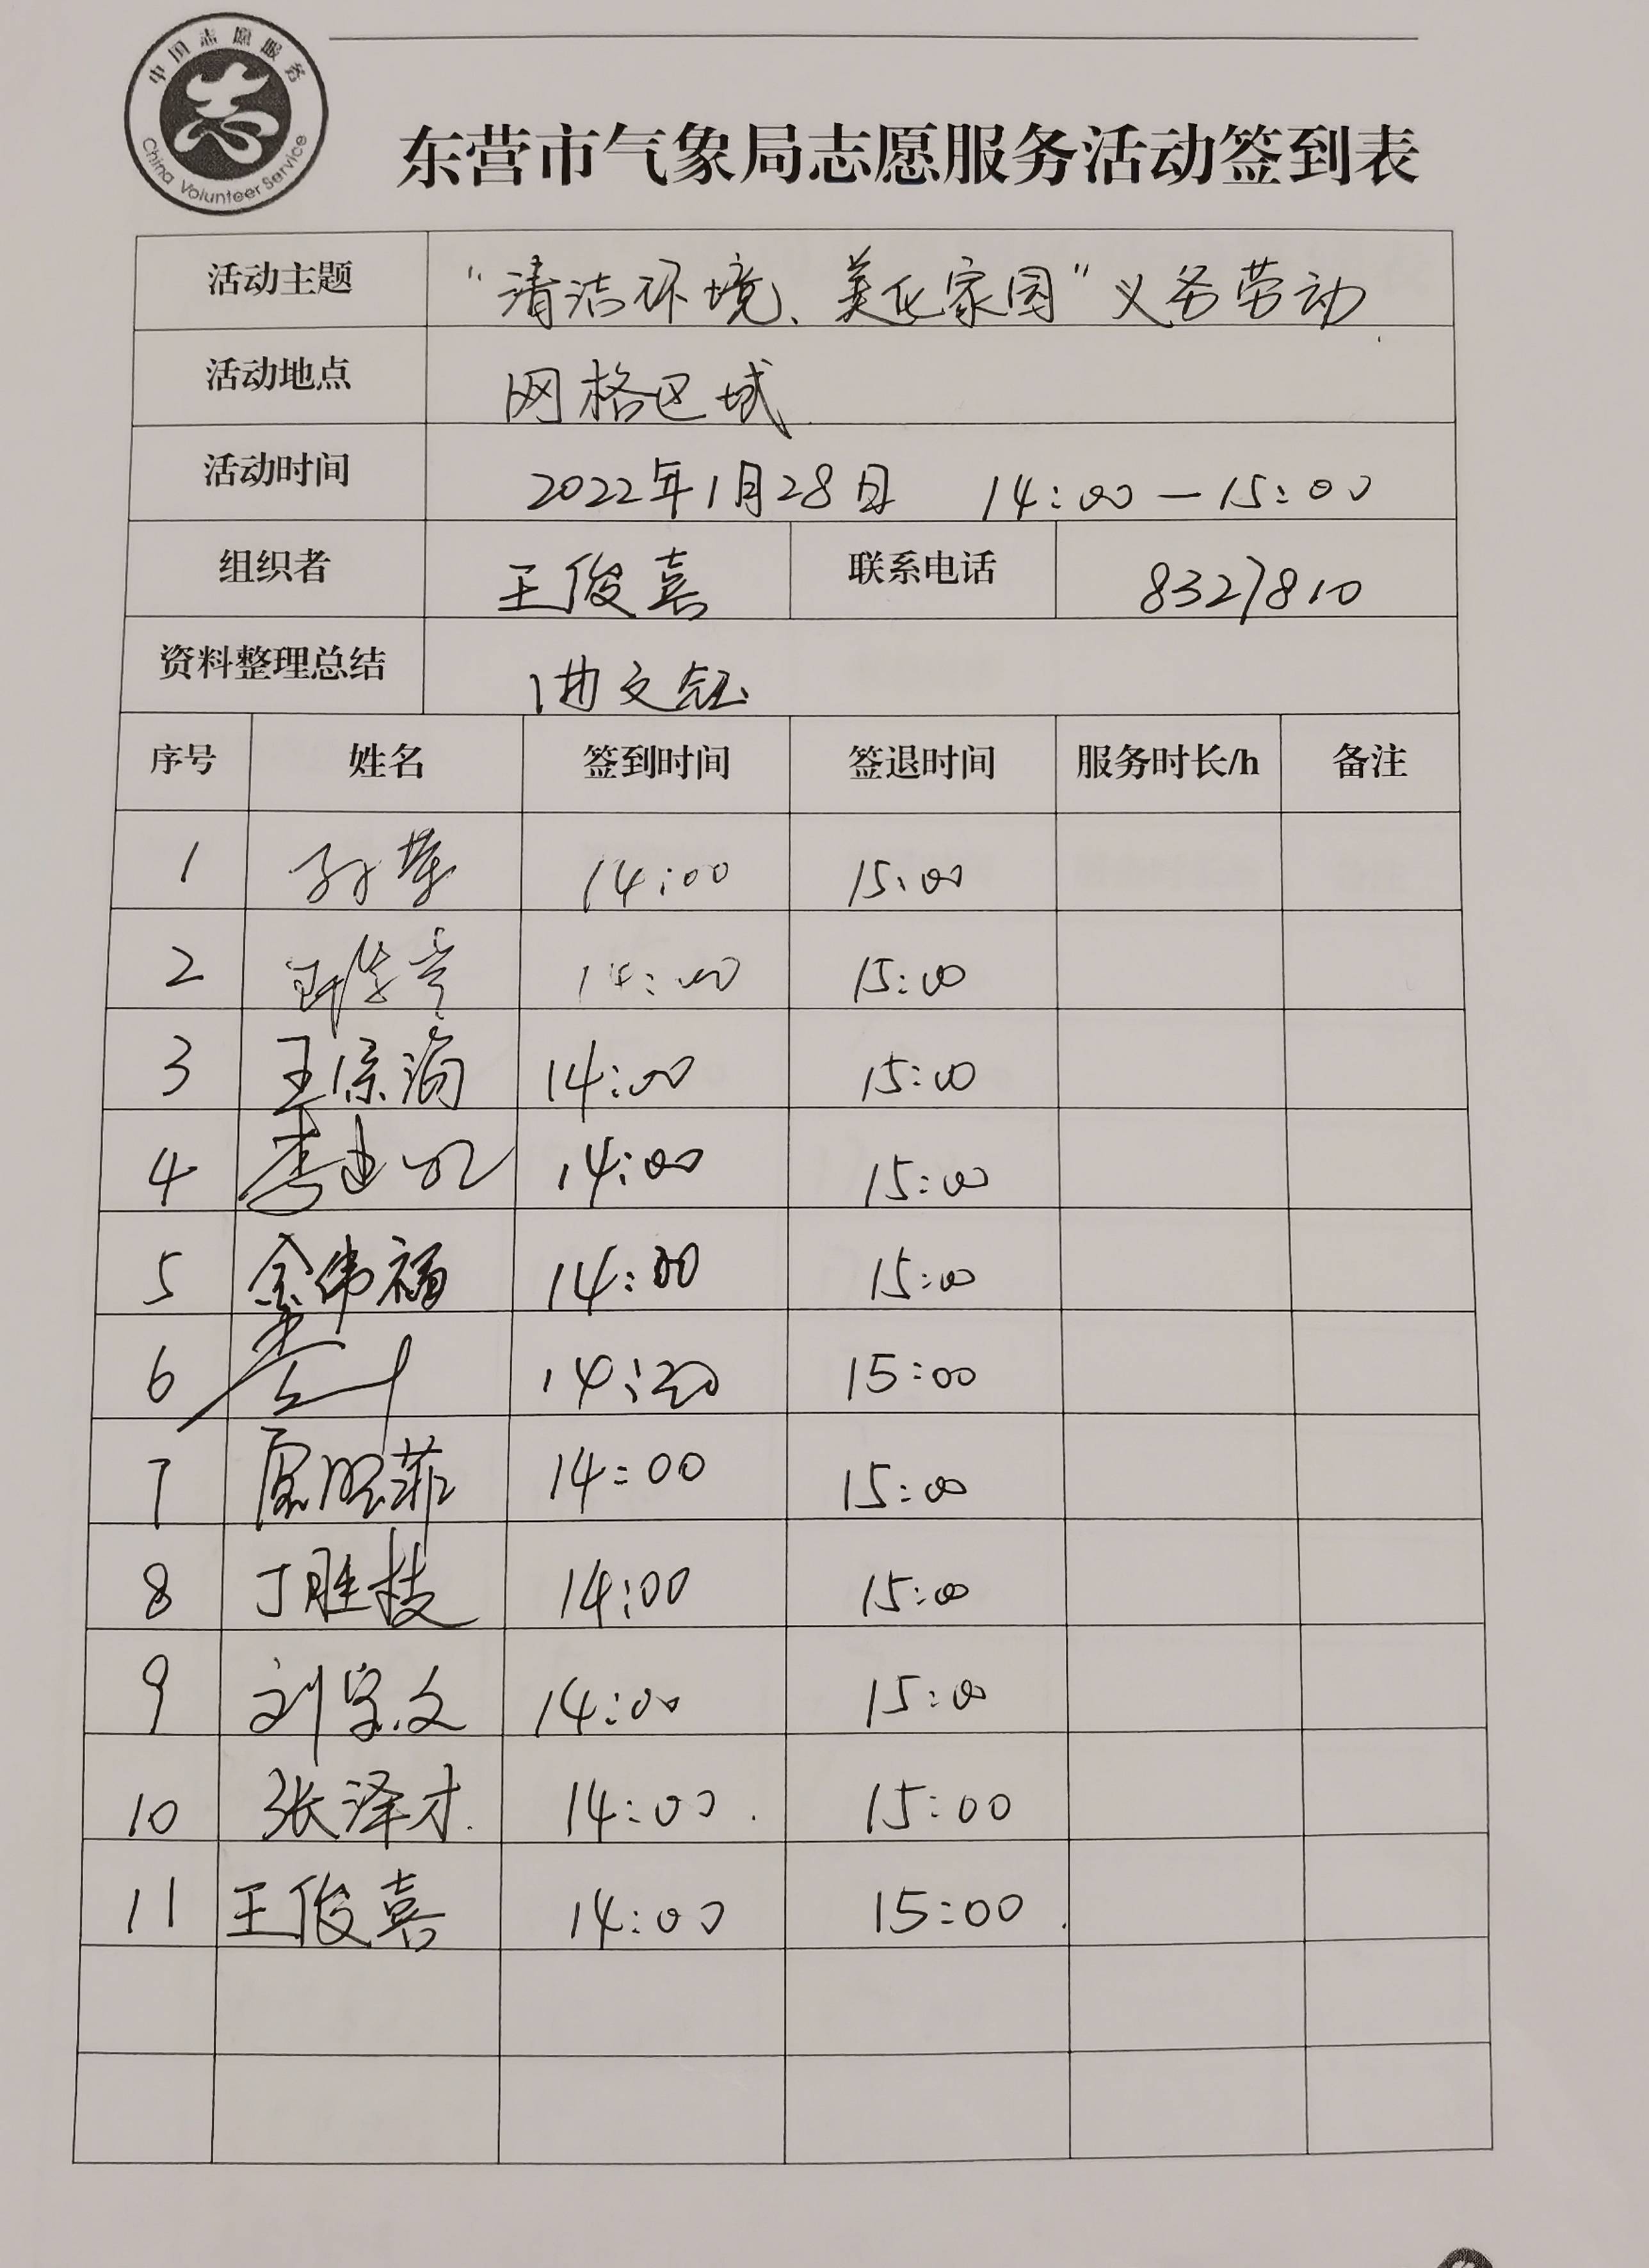 中国志愿服务
China Volunteer Service
东营市气象局志愿服务活动签到表
活动主题 “清洁环境、美化家园”义务劳动
活动地点 网格区域
活动时间 2022年1月28日 14:00—15:00
组织者 王俊喜 联系电话 8327810
资料整理总结 曲文钰
序号 姓名 签到时间 签退时间 服务时长/h 备注
1 14:00 15:00
2 14:00 15:00
3 14:00 15:00
4 14:00 15:00
5 金伟福 14:00 15:00
6 14:20 15:00
7 14:00 15:00
8 丁胜技 14:00 15:00
9 14:00 15:00
10 张泽才 14:00 15:00
11 王俊喜 14:00 15:00